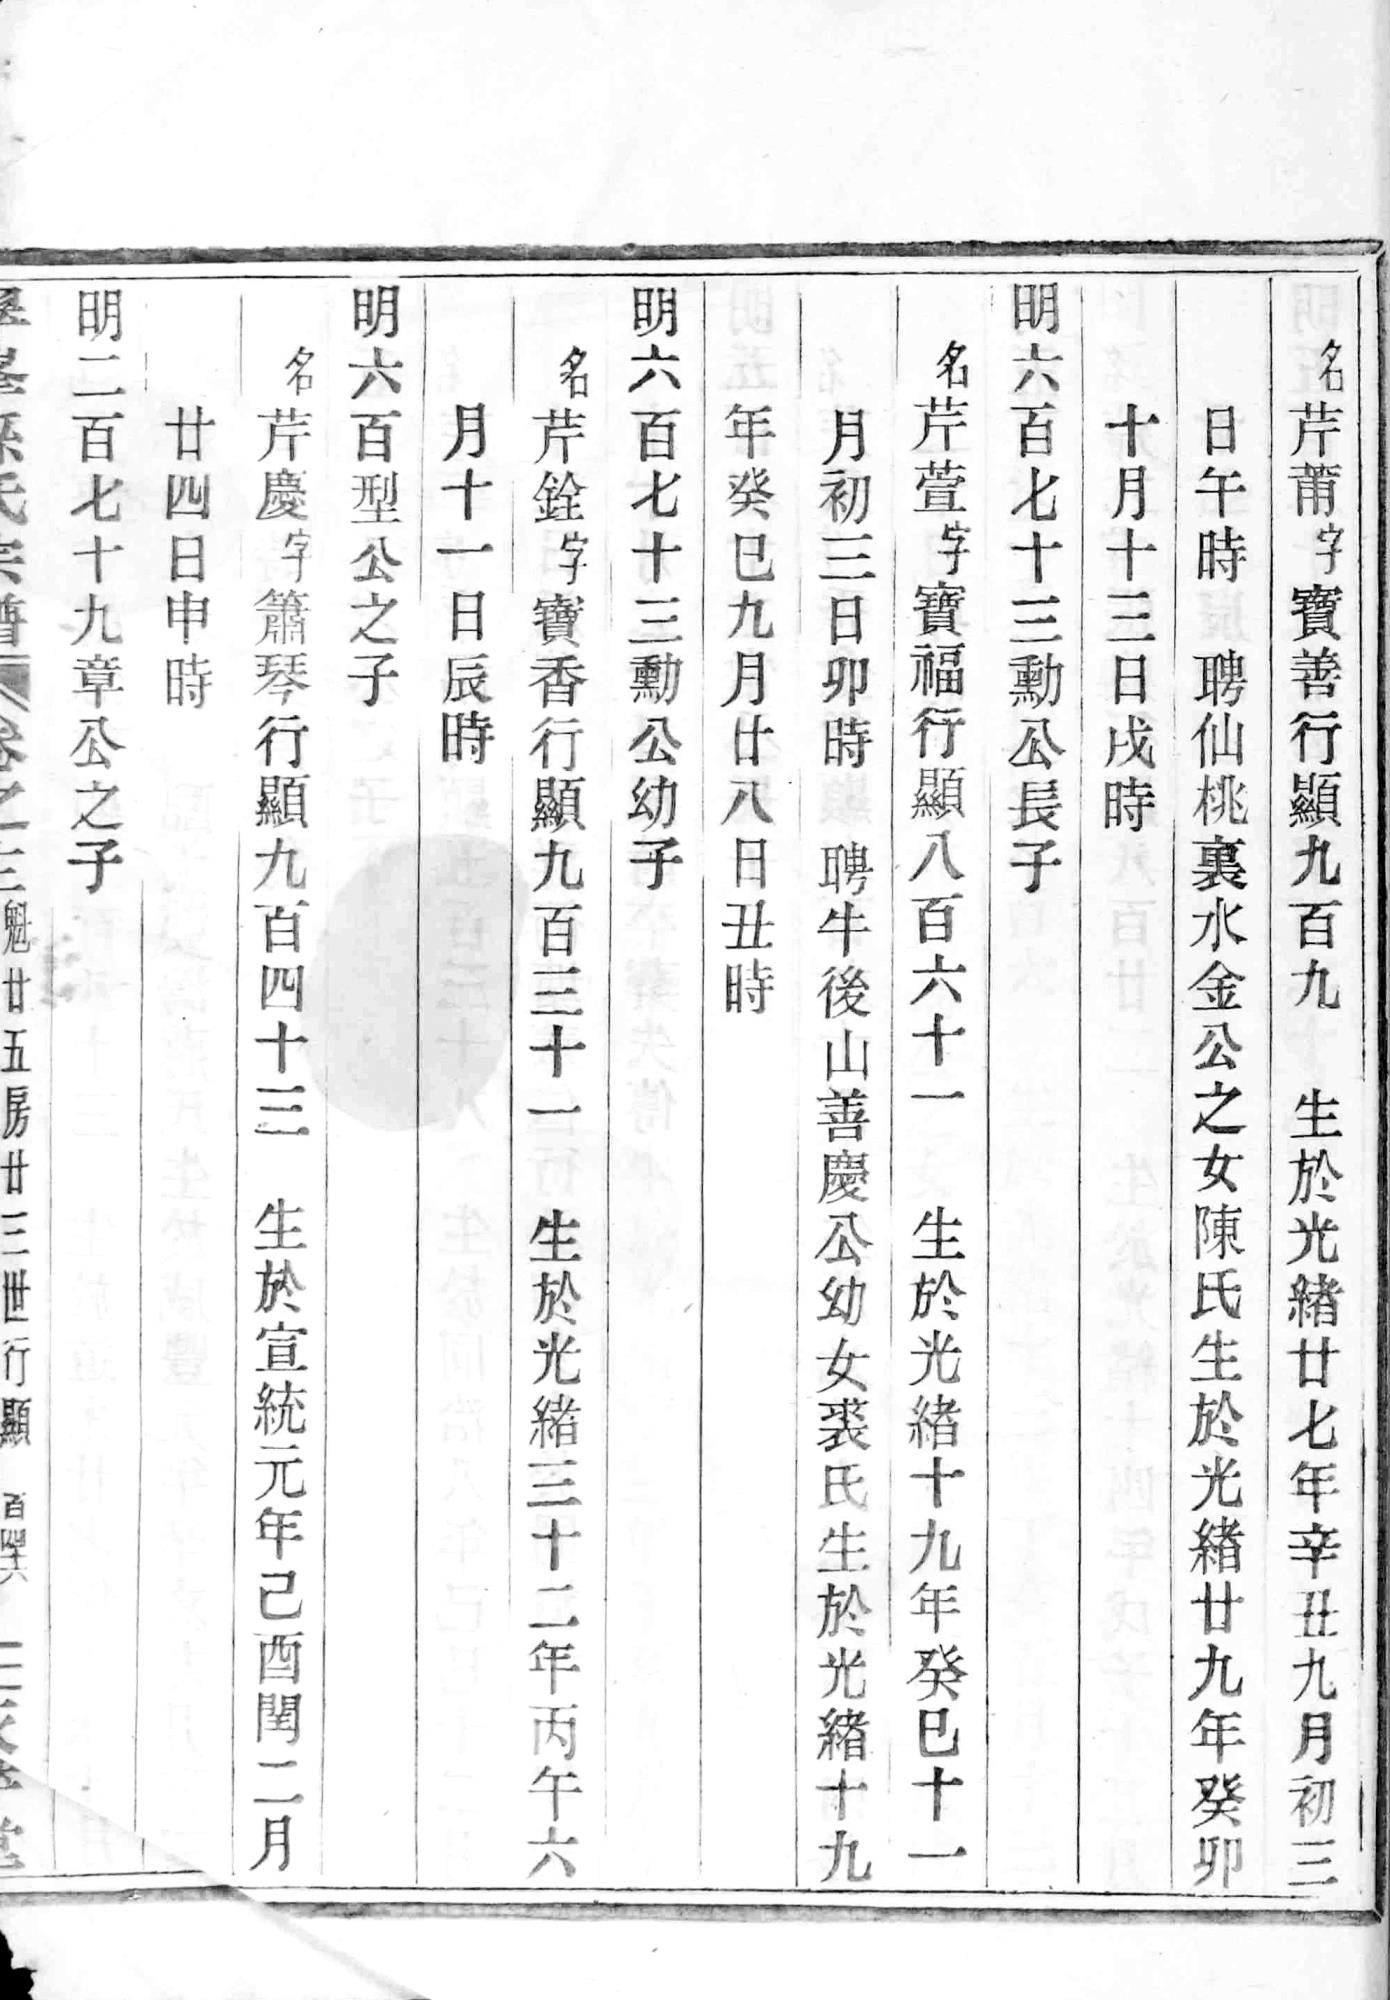 名芹莆字寶善行顯九百九　生於光緒廿七年辛丑九月初三
日午時　聘仙桃裏水金公之女陳氏生於光緒廿九年癸卯
十月十三日戌時
明六百七十三勳公長子
名芹萱字寶福行顯八百六十一　生於光緒十九年癸巳十一
月初三日卯時　聘牛後山善慶公幼女裘氏生於光緒十九
年癸巳九月廿八日丑時
明六百七十三勳公幼子
名芹銓字寶香行顯九百三十一　生於光緒三十二年丙午六
月十一日辰時
明六百型公之子
名芹慶字簫琴行顯九百四十三　生於宣統元年己酉閏二月
廿四日申時
明二百七十九章公之子
孫氏宗譜　卷之　魁廿五房廿三世行顯　堂